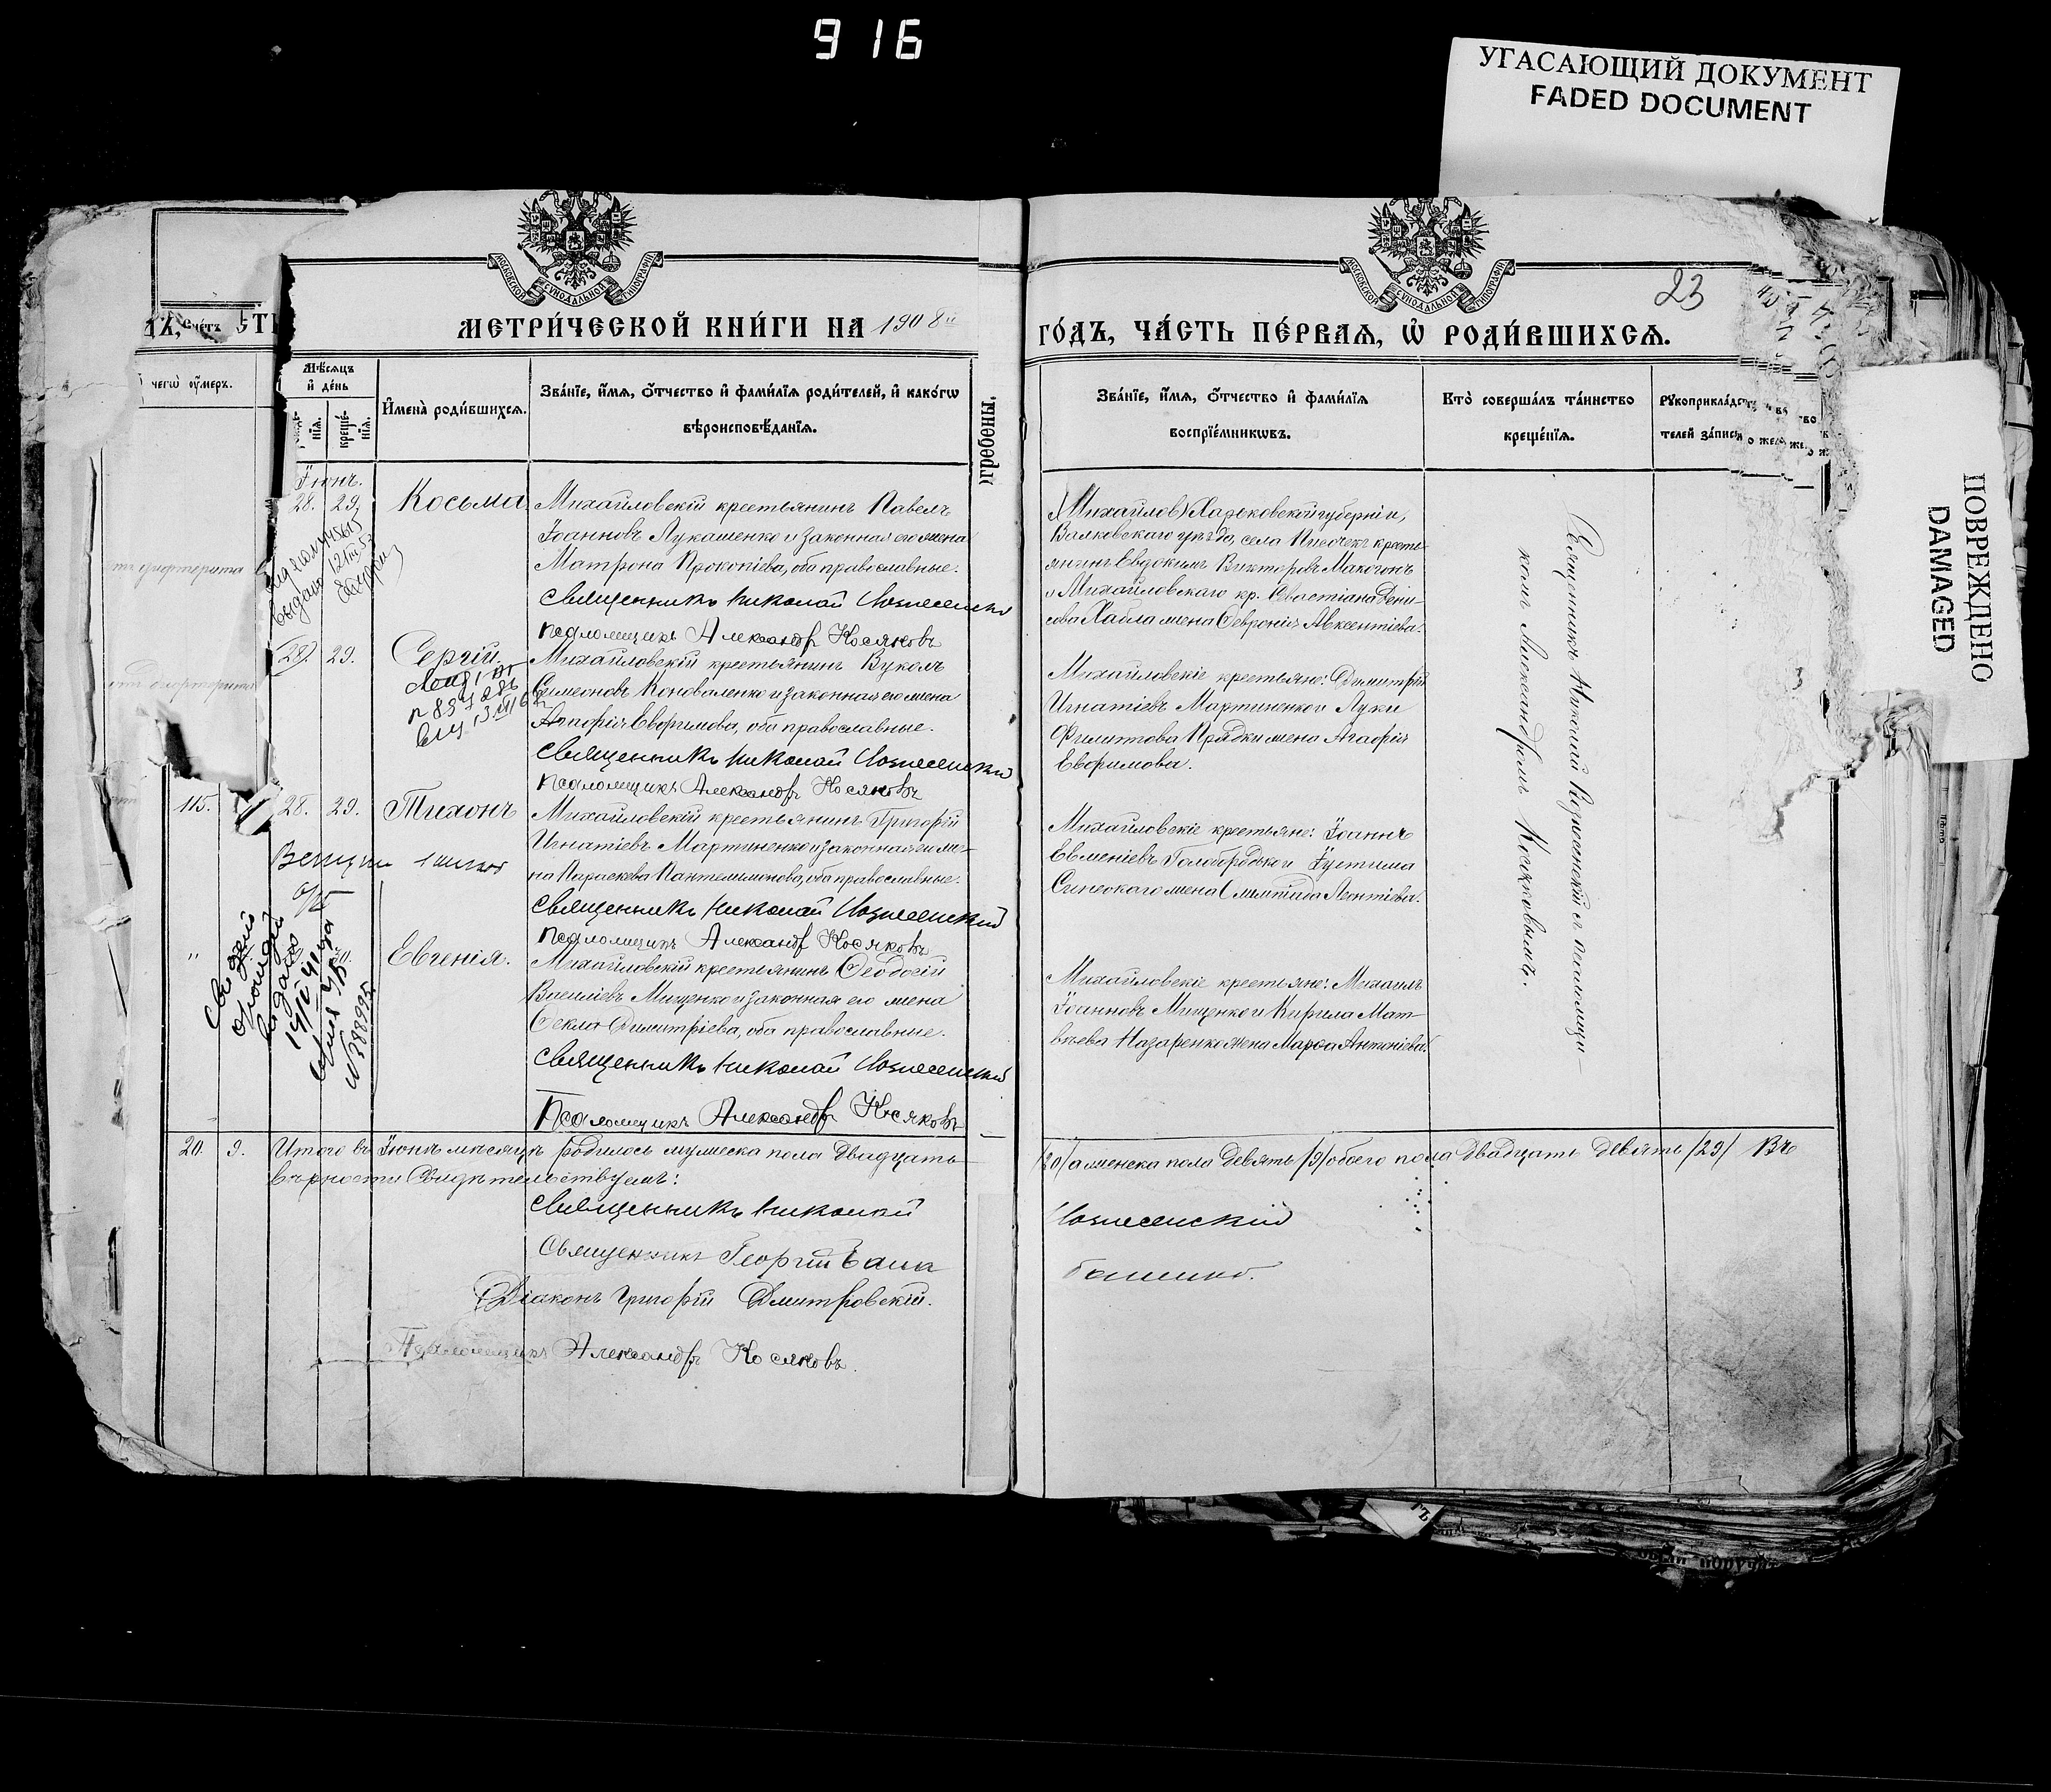 916
УГАСАЮЩИЙ ДОКУМЕНТ
FADED DOCUMENT
ПОВРЕЖДЕНО
DAMAGED
МОСКОВСКОЙ СѴНОДАЛЬНОЙ ТИПОГРАФІИ
МОСКОВСКОЙ СѴНОДАЛЬНОЙ ТИПОГРАФІИ
23
МЕТРИ́ЧЕСКОЙ КНИ́ГИ НА 1908й
ГО́ДЪ, ЧА́СТЬ ПЕ́РВАЯ, Ѿ РОДИ́ВШИХСЯ.
Счетъ
чегѡ ᲂу҆́меръ.
Мѣсяцъ
и҆ де́нь
креще́-
нїя.
И҆мена̀ роди́вшихся.
Зва́нїе, и҆́мя, ѻ҆́тчество и҆ фами́лїя роди́телей, и҆ како́гѡ
вѣроисповѣ́данїя.
гребены.
Зва́нїе, и҆́мя, ѻ҆́тчество и҆ фами́лїя
воспрїе́мникѡвъ.
Кто̀ соверша́лъ та́инство
креще́нїя.
Рꙋкоприкла́дст
телей за́писи
Іюнь.
28. 29. Косьма Михайловскій крестьянинъ Павелъ
Іоанновъ Лукашенко и законная его жена
Матрона Прокопіева, оба православные.
Священникъ Николай Вознесенскій
Псаломщикъ Александръ Косяковъ
Михайлов) Харьковской губерніи,
Валковскаго уѣзда, села Песочекъ кресть-
янинъ Евдокимъ Викторовъ Макогонъ
и Михайловскаго кр. Севастіана Дени-
сова Хабла жена Февронія Авксентіева.
29. Сергій. Михайловскій крестьянинъ Вуколъ
Симеоновъ Коноваленко и законная его жена
Агафія Евфимова, оба православные.
Священникъ Николай Вознесенскій
Псаломщикъ Александръ Косяковъ
Михайловскіе крестьяне: Димитрій
Игнатіевъ Мартиненко и Луки
Филиппова Прядки жена Агафія
Евфимова.
115. 28. 29. Тихонъ Михайловскій крестьянинъ Григорій
Игнатіевъ Мартиненко и законная его же-
на Параскева Пантелимонова, оба православные.
Священникъ Николай Вознесенскій
Псаломщикъ Александръ Косяковъ
Михайловскіе крестьяне: Іоаннъ
Евменіевъ Голобородько и Іустина
Синеокаго жена Олимпіада Леонтіева.
" Евгенія. Михайловскій крестьянинъ Ѳеодосій
Василіевъ Мищенко и законная его жена
Ѳекла Димитріева, оба православные.
Священникъ Николай Вознесенскій
Псаломщикъ Александръ Косяковъ
Михайловскіе крестьяне: Михаилъ
Іоанновъ Мищенко и Кирила Мат-
вѣева Назаренко жена Марфа Антоніева.
Священникъ Николай Вознесенскій съ псаломщи-
комъ Александромъ Косяковымъ.
20. 9. Итого въ Іюнѣ мѣсяцѣ родилось мужеска пола двадцать
/20/ а женска пола девять /9/ обоего пола двадцать девять /29/ Въ
вѣрности свидѣтельствуемъ:
Священникъ Николай Вознесенскій
Священникъ Георгій
Діаконъ Григорій Дмитровскій.
Псаломщикъ Александръ Косяковъ.